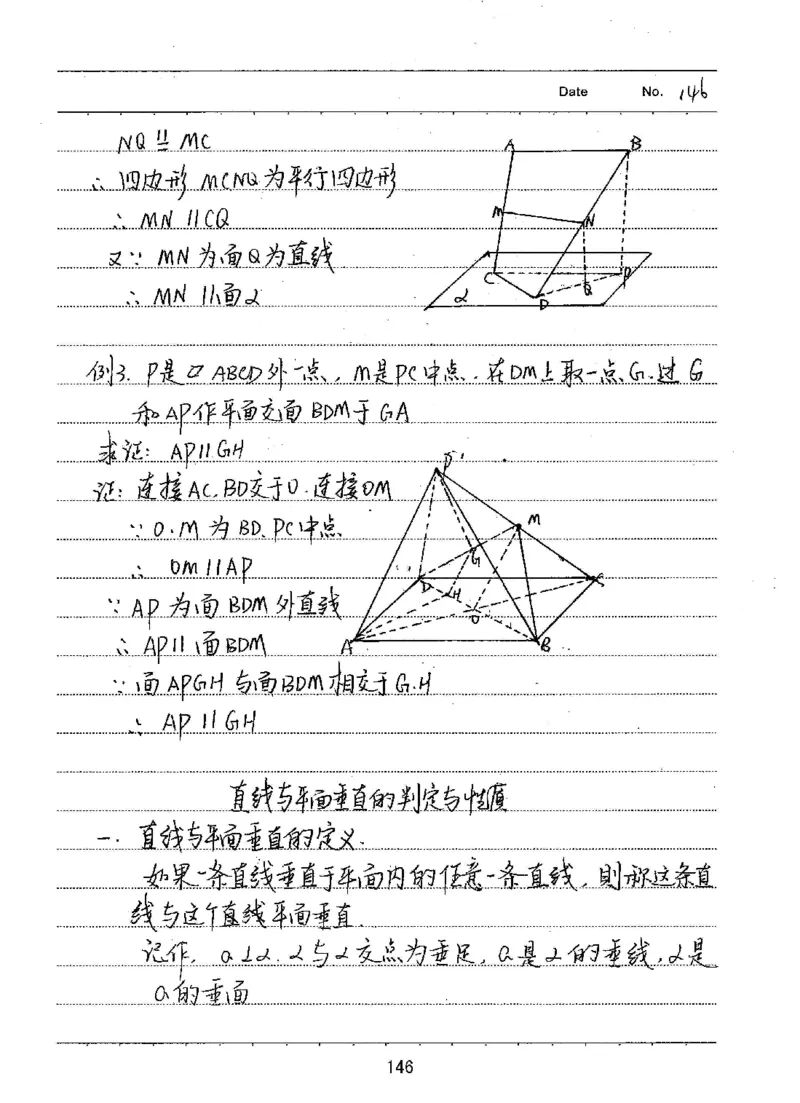 Date No. 146
NQ ∥= MC
∴ 四边形 MCNQ为平行四边形
∴ MN∥CQ
又∵ MN为面Q为直线
∴ MN∥面α
A B
M N
C P
α D Q
例3. P是▱ABCD外一点, M是PC中点. 在DM上取一点G.过G
和AP作平面交面BDM于GA
求证: AP∥GH
证: 连接AC, BD交于O. 连接OM
∵ O.M为BD、PC中点
∴ OM∥AP
∵ AP为面BDM外直线
∴ AP∥面BDM
∵ 面APGH与面BDM相交于G.H
∴ AP∥GH
P
M
G
D H C
O
A B
直线与平面垂直的判定与性质
一. 直线与平面垂直的定义.
如果一条直线垂直于平面内的任意一条直线, 则称这条直
线与这个直线平面垂直.
记作, a⊥α. α与α交点为垂足, a是α的垂线, α是
a的垂面
146